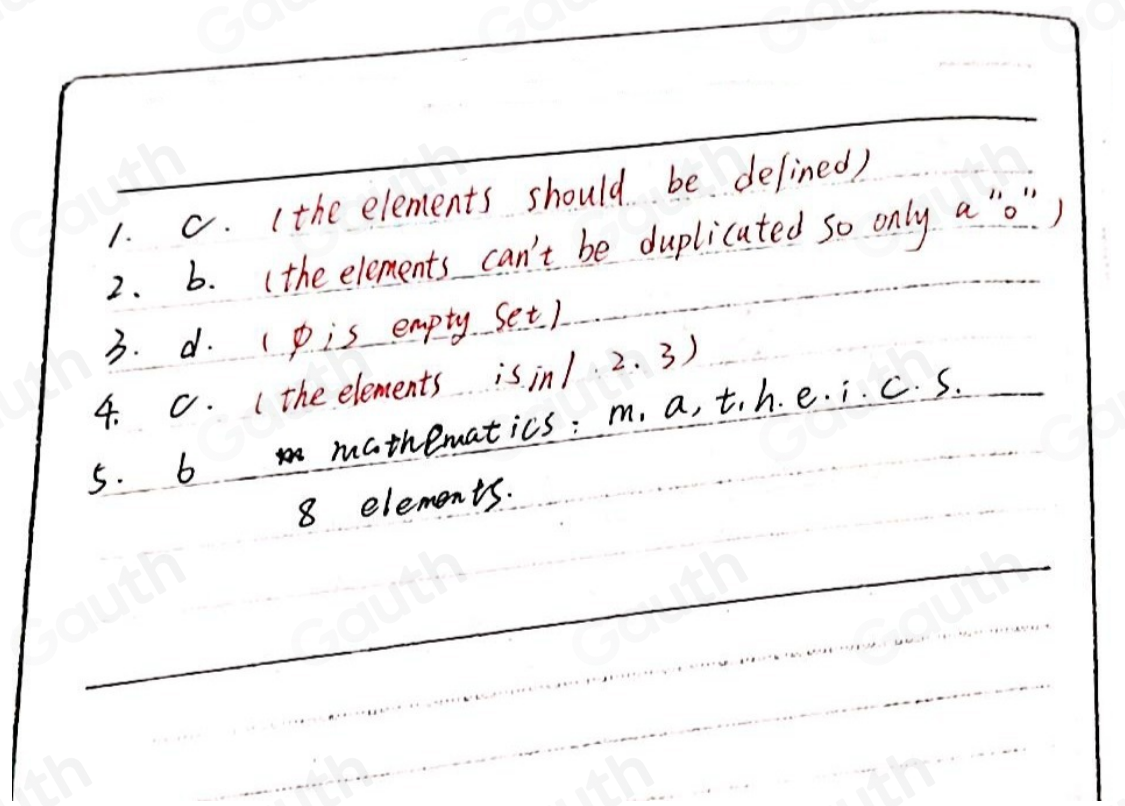 1. c. (the elements should be defined)
2. b. (the elements can't be duplicated so only a "o")
3. d. (φ is empty set)
4. c. (the elements is in 1.2.3)
5. b mathematics: m. a, t. h. e. i. c. s.
8 elements.